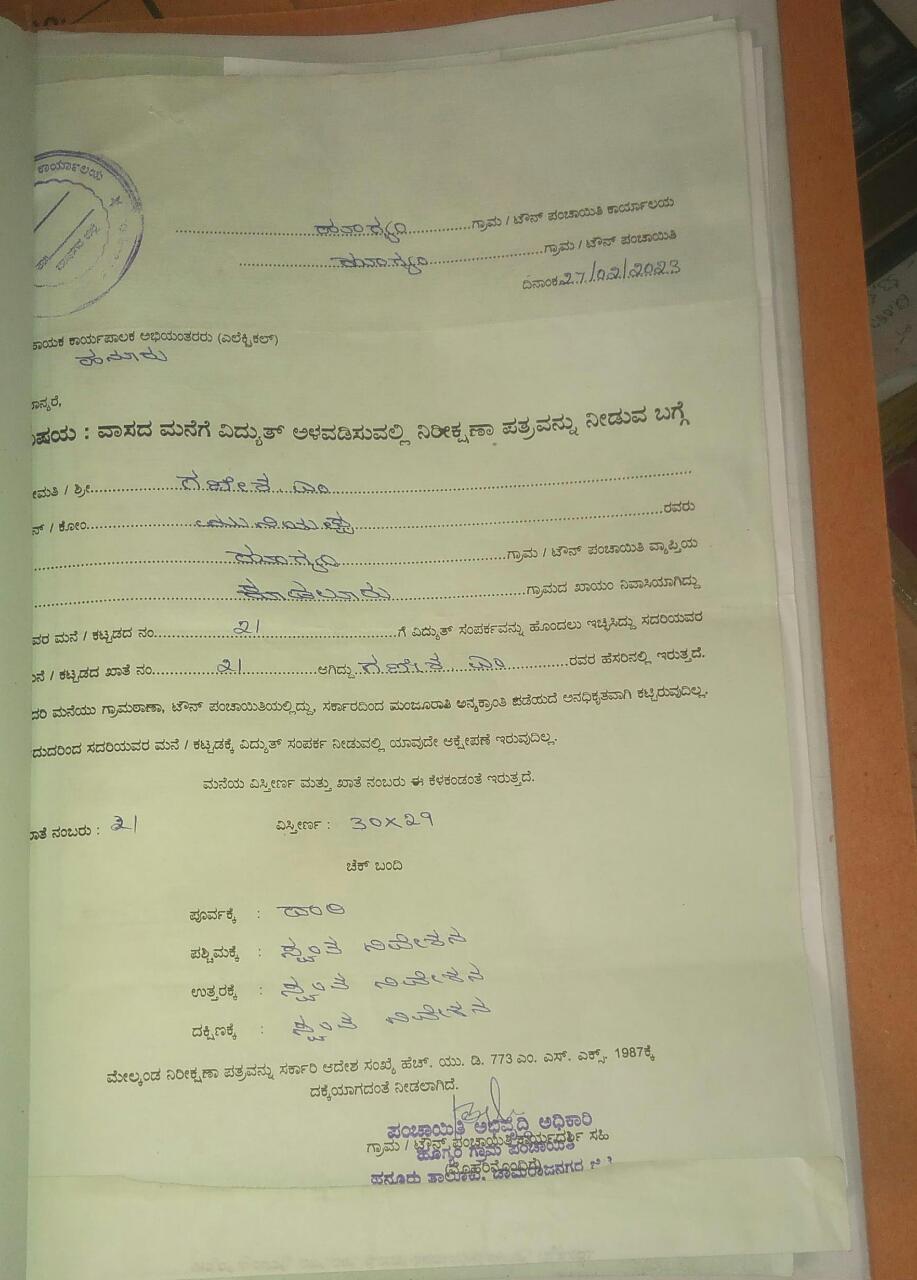 ಕಾರ್ಯಾಲಯ
ಹೂಗ್ಯಂ ಗ್ರಾಮ / ಟೌನ್ ಪಂಚಾಯಿತಿ ಕಾರ್ಯಾಲಯ
ಹೂಗ್ಯಂ ಗ್ರಾಮ / ಟೌನ್ ಪಂಚಾಯಿತಿ
ದಿನಾಂಕ 27/02/2023
ಾಯಕ ಕಾರ್ಯಪಾಲಕ ಅಭಿಯಂತರರು (ಎಲೆಕ್ಟ್ರಿಕಲ್)
ಹನೂರು
ಾನ್ಯರೆ,
ಷಯ : ವಾಸದ ಮನೆಗೆ ವಿದ್ಯುತ್ ಅಳವಡಿಸುವಲ್ಲಿ ನಿರೀಕ್ಷಣಾ ಪತ್ರವನ್ನು ನೀಡುವ ಬಗ್ಗೆ
ೀಮತಿ / ಶ್ರೀ ಗಣೇಶ ಎಂ
ನ್ / ಕೋಂ ಮುನಿಯಪ್ಪ ರವರು
ಹೂಗ್ಯಂ ಗ್ರಾಮ / ಟೌನ್ ಪಂಚಾಯಿತಿ ವ್ಯಾಪ್ತಿಯ
ಗ್ರಾಮದ ಖಾಯಂ ನಿವಾಸಿಯಾಗಿದ್ದು
ವರ ಮನೆ / ಕಟ್ಟಡದ ನಂ 21 ಗೆ ವಿದ್ಯುತ್ ಸಂಪರ್ಕವನ್ನು ಹೊಂದಲು ಇಚ್ಛಿಸಿದ್ದು ಸದರಿಯವರ
ನೆ / ಕಟ್ಟಡದ ಖಾತೆ ನಂ 21 ಆಗಿದ್ದು ಗಣೇಶ ಎಂ ರವರ ಹೆಸರಿನಲ್ಲಿ ಇರುತ್ತದೆ.
ದರಿ ಮನೆಯು ಗ್ರಾಮಠಾಣಾ, ಟೌನ್ ಪಂಚಾಯಿತಿಯಲ್ಲಿದ್ದು, ಸರ್ಕಾರದಿಂದ ಮಂಜೂರಾತಿ ಅನ್ಯಕ್ರಾಂತಿ ಪಡೆಯದೆ ಅನಧಿಕೃತವಾಗಿ ಕಟ್ಟಿರುವುದಿಲ್ಲ.
ದುದರಿಂದ ಸದರಿಯವರ ಮನೆ / ಕಟ್ಟಡಕ್ಕೆ ವಿದ್ಯುತ್ ಸಂಪರ್ಕ ನೀಡುವಲ್ಲಿ ಯಾವುದೇ ಆಕ್ಷೇಪಣೆ ಇರುವುದಿಲ್ಲ.
ಮನೆಯ ವಿಸ್ತೀರ್ಣ ಮತ್ತು ಖಾತೆ ನಂಬರು ಈ ಕೆಳಕಂಡಂತೆ ಇರುತ್ತದೆ.
ಾತೆ ನಂಬರು : 21 ವಿಸ್ತೀರ್ಣ : 30x29
ಚೆಕ್ ಬಂದಿ
ಪೂರ್ವಕ್ಕೆ :
ಪಶ್ಚಿಮಕ್ಕೆ : ಸ್ವಂತ ನಿವೇಶನ
ಉತ್ತರಕ್ಕೆ : ಸ್ವಂತ ನಿವೇಶನ
ದಕ್ಷಿಣಕ್ಕೆ : ಸ್ವಂತ ನಿವೇಶನ
ಮೇಲ್ಕಂಡ ನಿರೀಕ್ಷಣಾ ಪತ್ರವನ್ನು ಸರ್ಕಾರಿ ಆದೇಶ ಸಂಖ್ಯೆ ಹೆಚ್. ಯು. ಡಿ. 773 ಎಂ. ಎಸ್. ಎಕ್ಸ್. 1987ಕ್ಕೆ
ದಕ್ಕೆಯಾಗದಂತೆ ನೀಡಲಾಗಿದೆ.
ಪಂಚಾಯಿತಿ ಅಭಿವೃದ್ಧಿ ಅಧಿಕಾರಿ
ಗ್ರಾಮ / ಟೌನ್ ಪಂಚಾಯಿತಿ ಕಾರ್ಯದರ್ಶಿ ಸಹಿ
ಹೂಗ್ಯಂ ಗ್ರಾಮ ಪಂಚಾಯಿತಿ
(ಮೊಹರಿನೊಂದಿಗೆ)
ಹನೂರು ತಾಲೂಕು, ಚಾಮರಾಜನಗರ